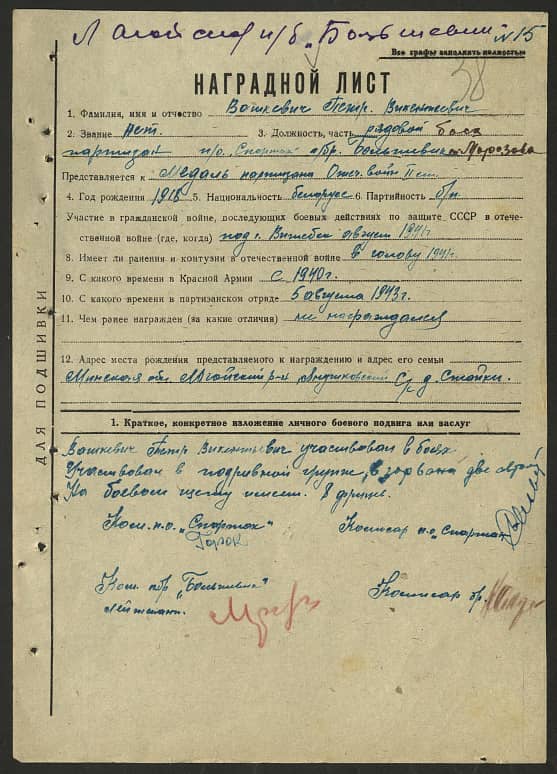 Логойский п/б "Большевик" №15
Все графы заполнять полностью
38
НАГРАДНОЙ ЛИСТ
1. Фамилия, имя и отчество Вашкевич Петр. Викентьевич
2. Звание нет. 3. Должность, часть рядовой боец
партизан п/о "Спартак" п/бр. "Большевик"
Представляется к Медаль партизана Отеч. войны II ст.
4. Год рождения 1918 5. Национальность белорус 6. Партийность б/п
Участие в гражданской войне, последующих боевых действиях по защите СССР в отече-
ственной войне (где, когда) под г. Витебск август 1941г
8. Имеет ли ранения и контузии в отечественной войне в голову 1941г.
9. С какого времени в Красной Армии с 1940г.
10. С какого времени в партизанском отряде 5 августа 1943г.
11. Чем ранее награжден (за какие отличия) не награждался
12. Адрес места рождения представляемого к награждению и адрес его семьи
Минская обл. р-н, С/с д. Стайки.
ДЛЯ ПОДШИВКИ
1. Краткое, конкретное изложение личного боевого подвига или заслуг
Вашкевич Петр Викентьевич участвовал в боях
Участвовал в подрывной группе, взорвана две
На боевом щету имеет 8
Ком. п.о. "Спартак" Комисар п.о "Спартак"
Ком. п/бр "Большевик" Комисар бр.
лейтенант.